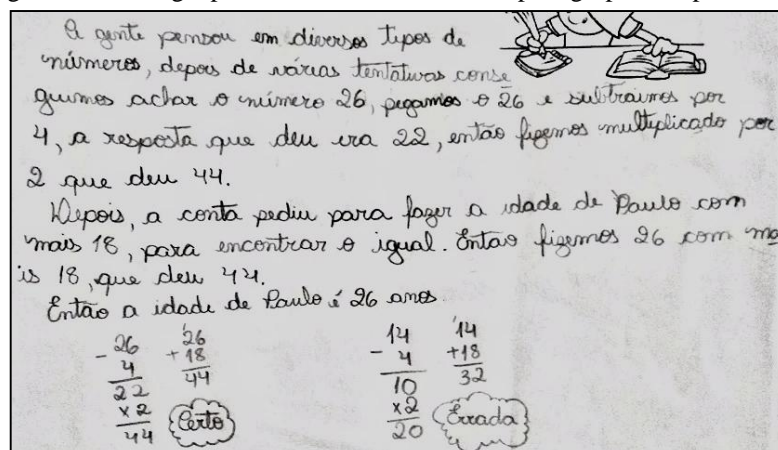 A gente pensou em diversos tipos de
números, depois de várias tentativas conse
guimos achar o número 26, pegamos o 26 e subtraimos por
4, a resposta que deu era 22, então fizemos multiplicado por
2 que deu 44.
Depois, a conta pediu para fazer a idade de Paulo com
mais 18, para encontrar o igual. Então fizemos 26 com ma
is 18, que deu 44.
Então a idade de Paulo é 26 anos.
26 26 14 14
- 4 + 18 - 4 + 18
22 44 10 32
x 2 Certo x 2 Errada
44 20